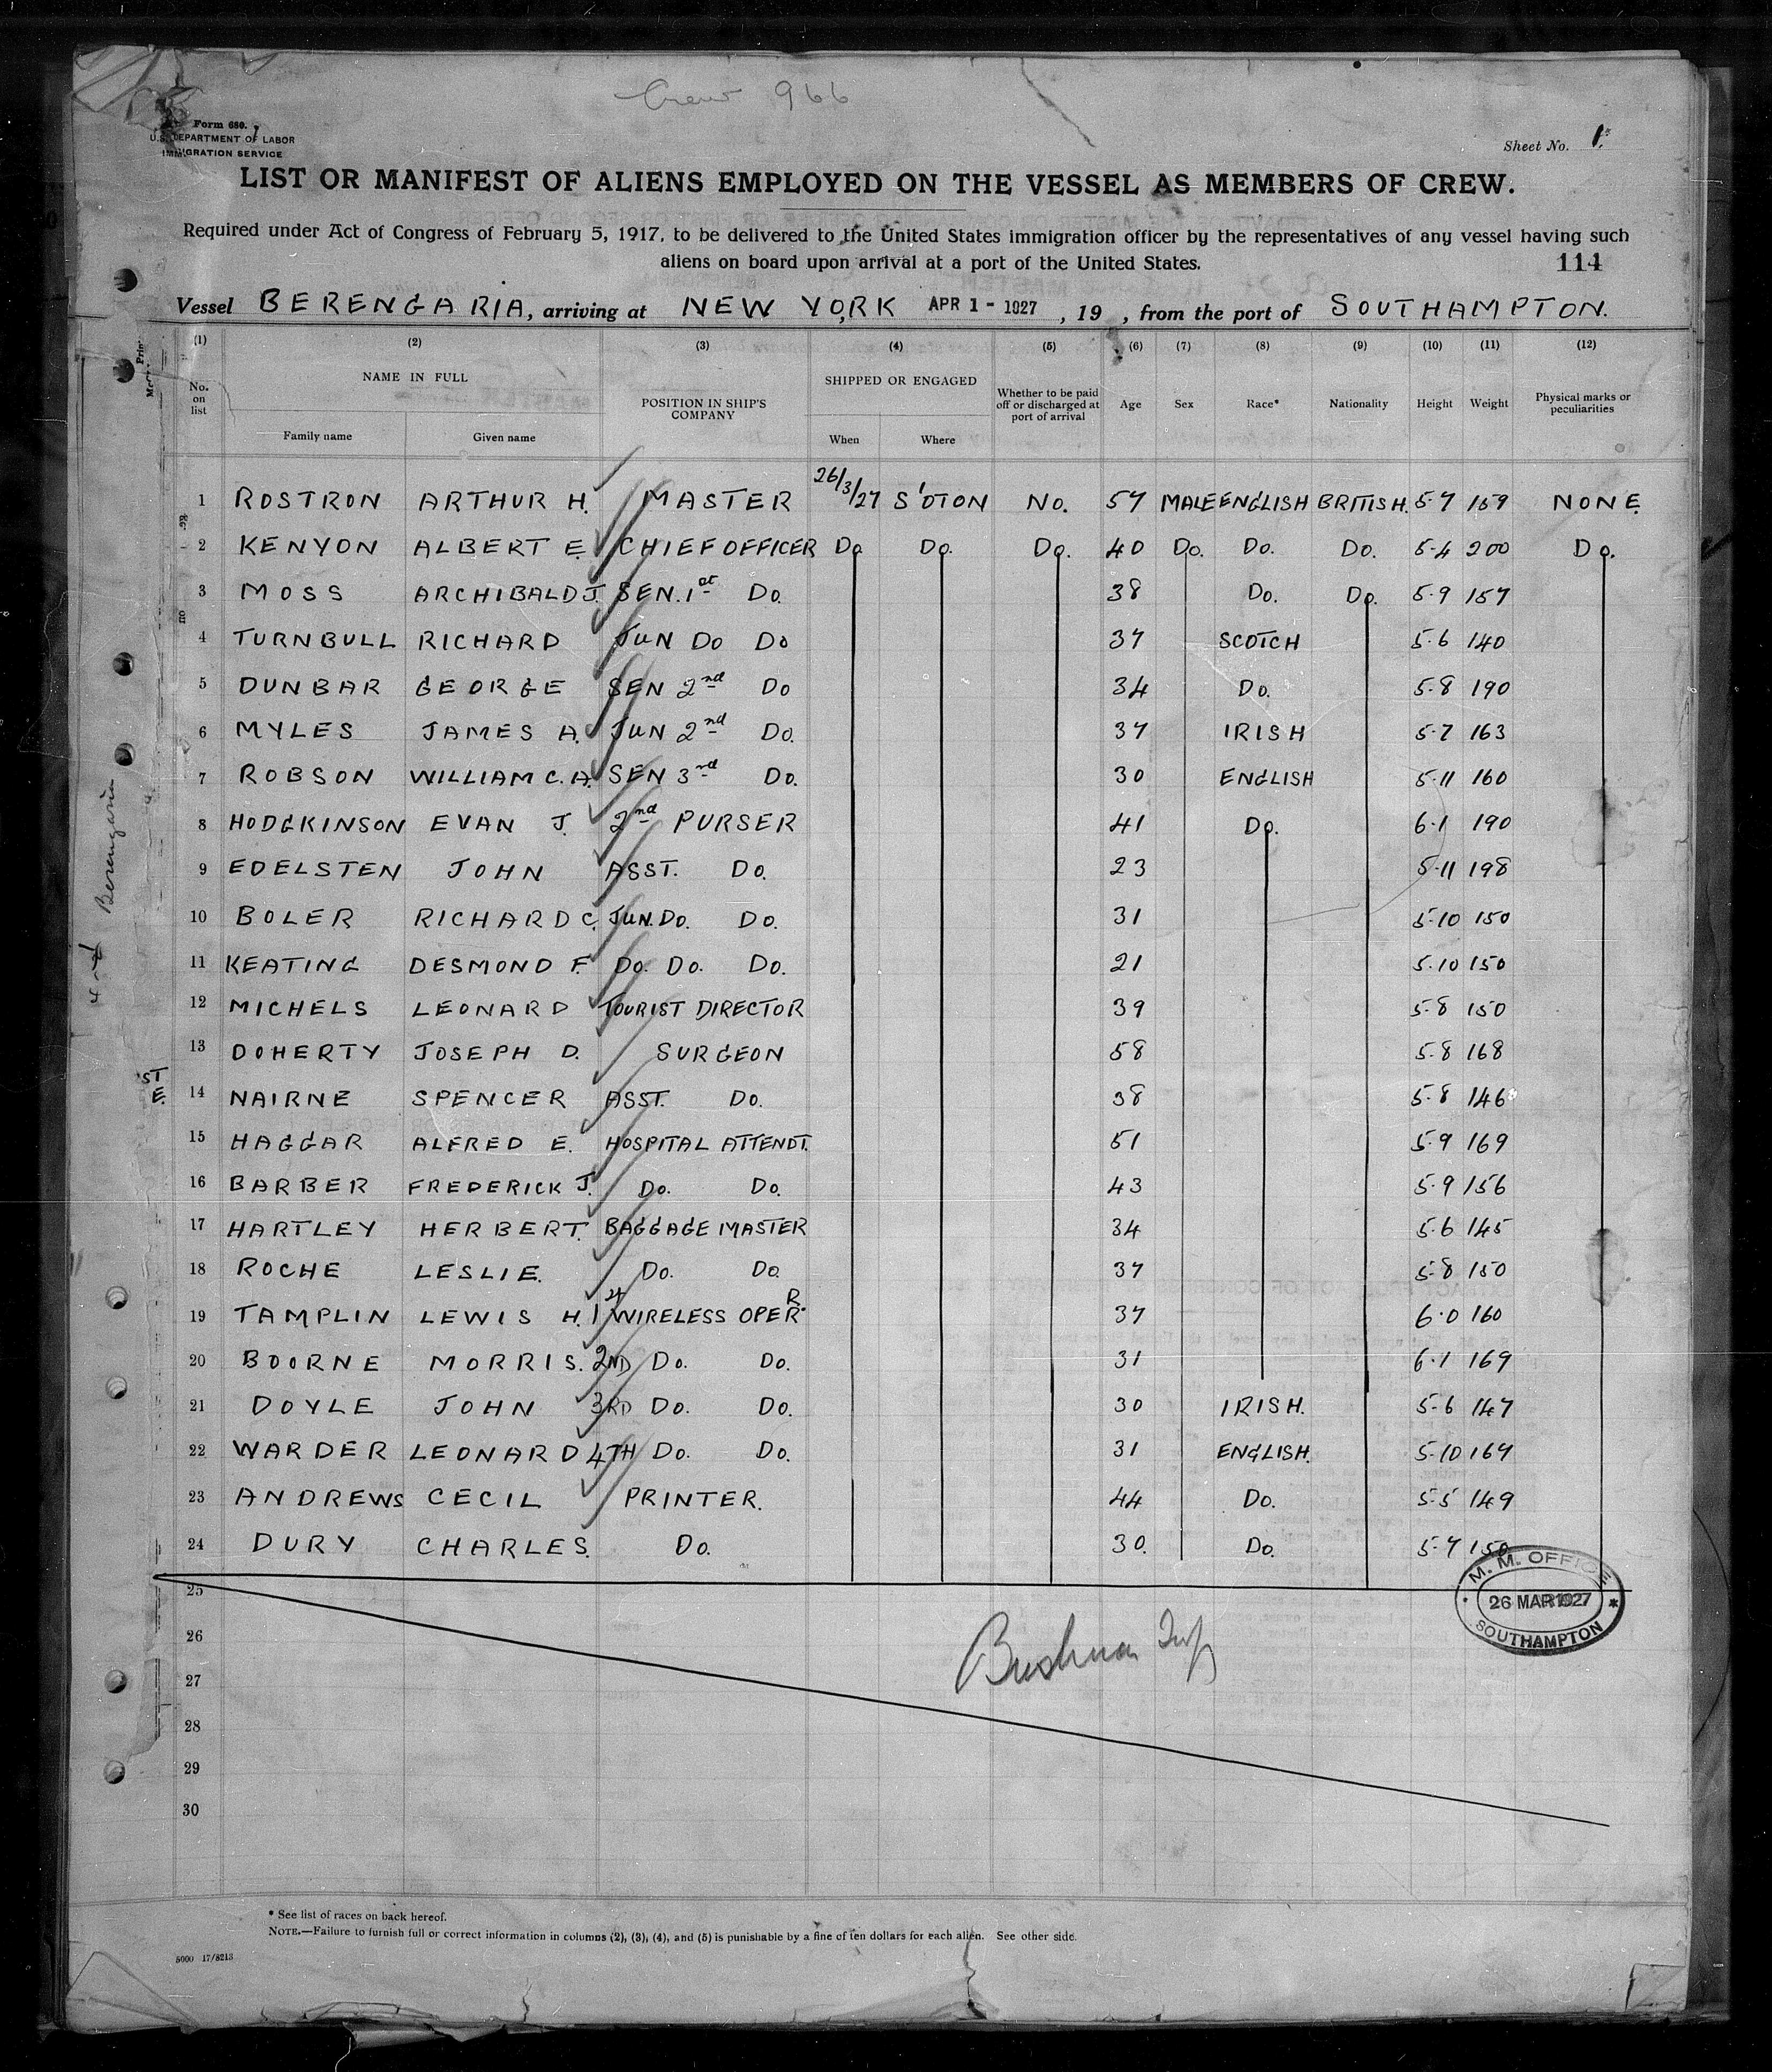 Crew 966
Form 680.
U.S. DEPARTMENT OF LABOR
IMMIGRATION SERVICE
Sheet No. 1.
LIST OR MANIFEST OF ALIENS EMPLOYED ON THE VESSEL AS MEMBERS OF CREW.
Required under Act of Congress of February 5, 1917, to be delivered to the United States immigration officer by the representatives of any vessel having such
aliens on board upon arrival at a port of the United States.
114
Vessel BERENGARIA, arriving at NEW YORK APR 1 - 1927, 19 , from the port of SOUTHAMPTON.
(1) (2) (3) (4) (5) (6) (7) (8) (9) (10) (11) (12)
No. on list NAME IN FULL Family name Given name POSITION IN SHIP'S COMPANY SHIPPED OR ENGAGED When Where Whether to be paid off or discharged at port of arrival Age Sex Race* Nationality Height Weight Physical marks or peculiarities
1 ROSTRON ARTHUR H. MASTER 26/3/27 S'OTON No. 57 MALE ENGLISH BRITISH. 5-7 159 NONE.
2 KENYON ALBERT E. CHIEF OFFICER Do Do. Do. 40 Do. Do. Do. 5-4 200 Do.
3 MOSS ARCHIBALD J. SEN. 1st Do. 38 Do. Do. 5-9 157
4 TURNBULL RICHARD JUN Do Do 37 SCOTCH 5-6 140
5 DUNBAR GEORGE SEN 2nd Do 34 Do. 5-8 190
6 MYLES JAMES A. JUN 2nd Do. 37 IRISH 5-7 163
7 ROBSON WILLIAM C. A. SEN 3rd Do. 30 ENGLISH 5-11 160
8 HODGKINSON EVAN J. 2nd PURSER 41 Do. 6-1 190
9 EDELSTEN JOHN ASST. Do. 23 5-11 198
10 BOLER RICHARD C. JUN. Do. Do. 31 5-10 150
11 KEATING DESMOND F. Do. Do. Do. 21 5-10 150
12 MICHELS LEONARD TOURIST DIRECTOR 39 5-8 150
13 DOHERTY JOSEPH D. SURGEON 58 5-8 168
14 NAIRNE SPENCER ASST. Do. 38 5-8 146
15 HAGGAR ALFRED E. HOSPITAL ATTENDT. 51 5-9 169
16 BARBER FREDERICK J. Do. Do. 43 5-9 156
17 HARTLEY HERBERT. BAGGAGE MASTER 34 5-6 145
18 ROCHE LESLIE. Do. Do. 37 5-8 150
19 TAMPLIN LEWIS H. 1st WIRELESS OPER. 37 6-0 160
20 BOORNE MORRIS. 2ND Do. Do. 31 6-1 169
21 DOYLE JOHN 3RD Do. Do. 30 IRISH. 5-6 147
22 WARDER LEONARD 4TH Do. Do. 31 ENGLISH. 5-10 164
23 ANDREWS CECIL PRINTER. 44 Do. 5-5 149
24 DURY CHARLES. Do. 30. Do. 5-7 150
25
26
27
28
29
30
M. M. OFFICE
26 MAR 1927
SOUTHAMPTON
Berengaria
ST
E.
* See list of races on back hereof.
NOTE.—Failure to furnish full or correct information in columns (2), (3), (4), and (5) is punishable by a fine of ten dollars for each alien. See other side.
5000 17/8213